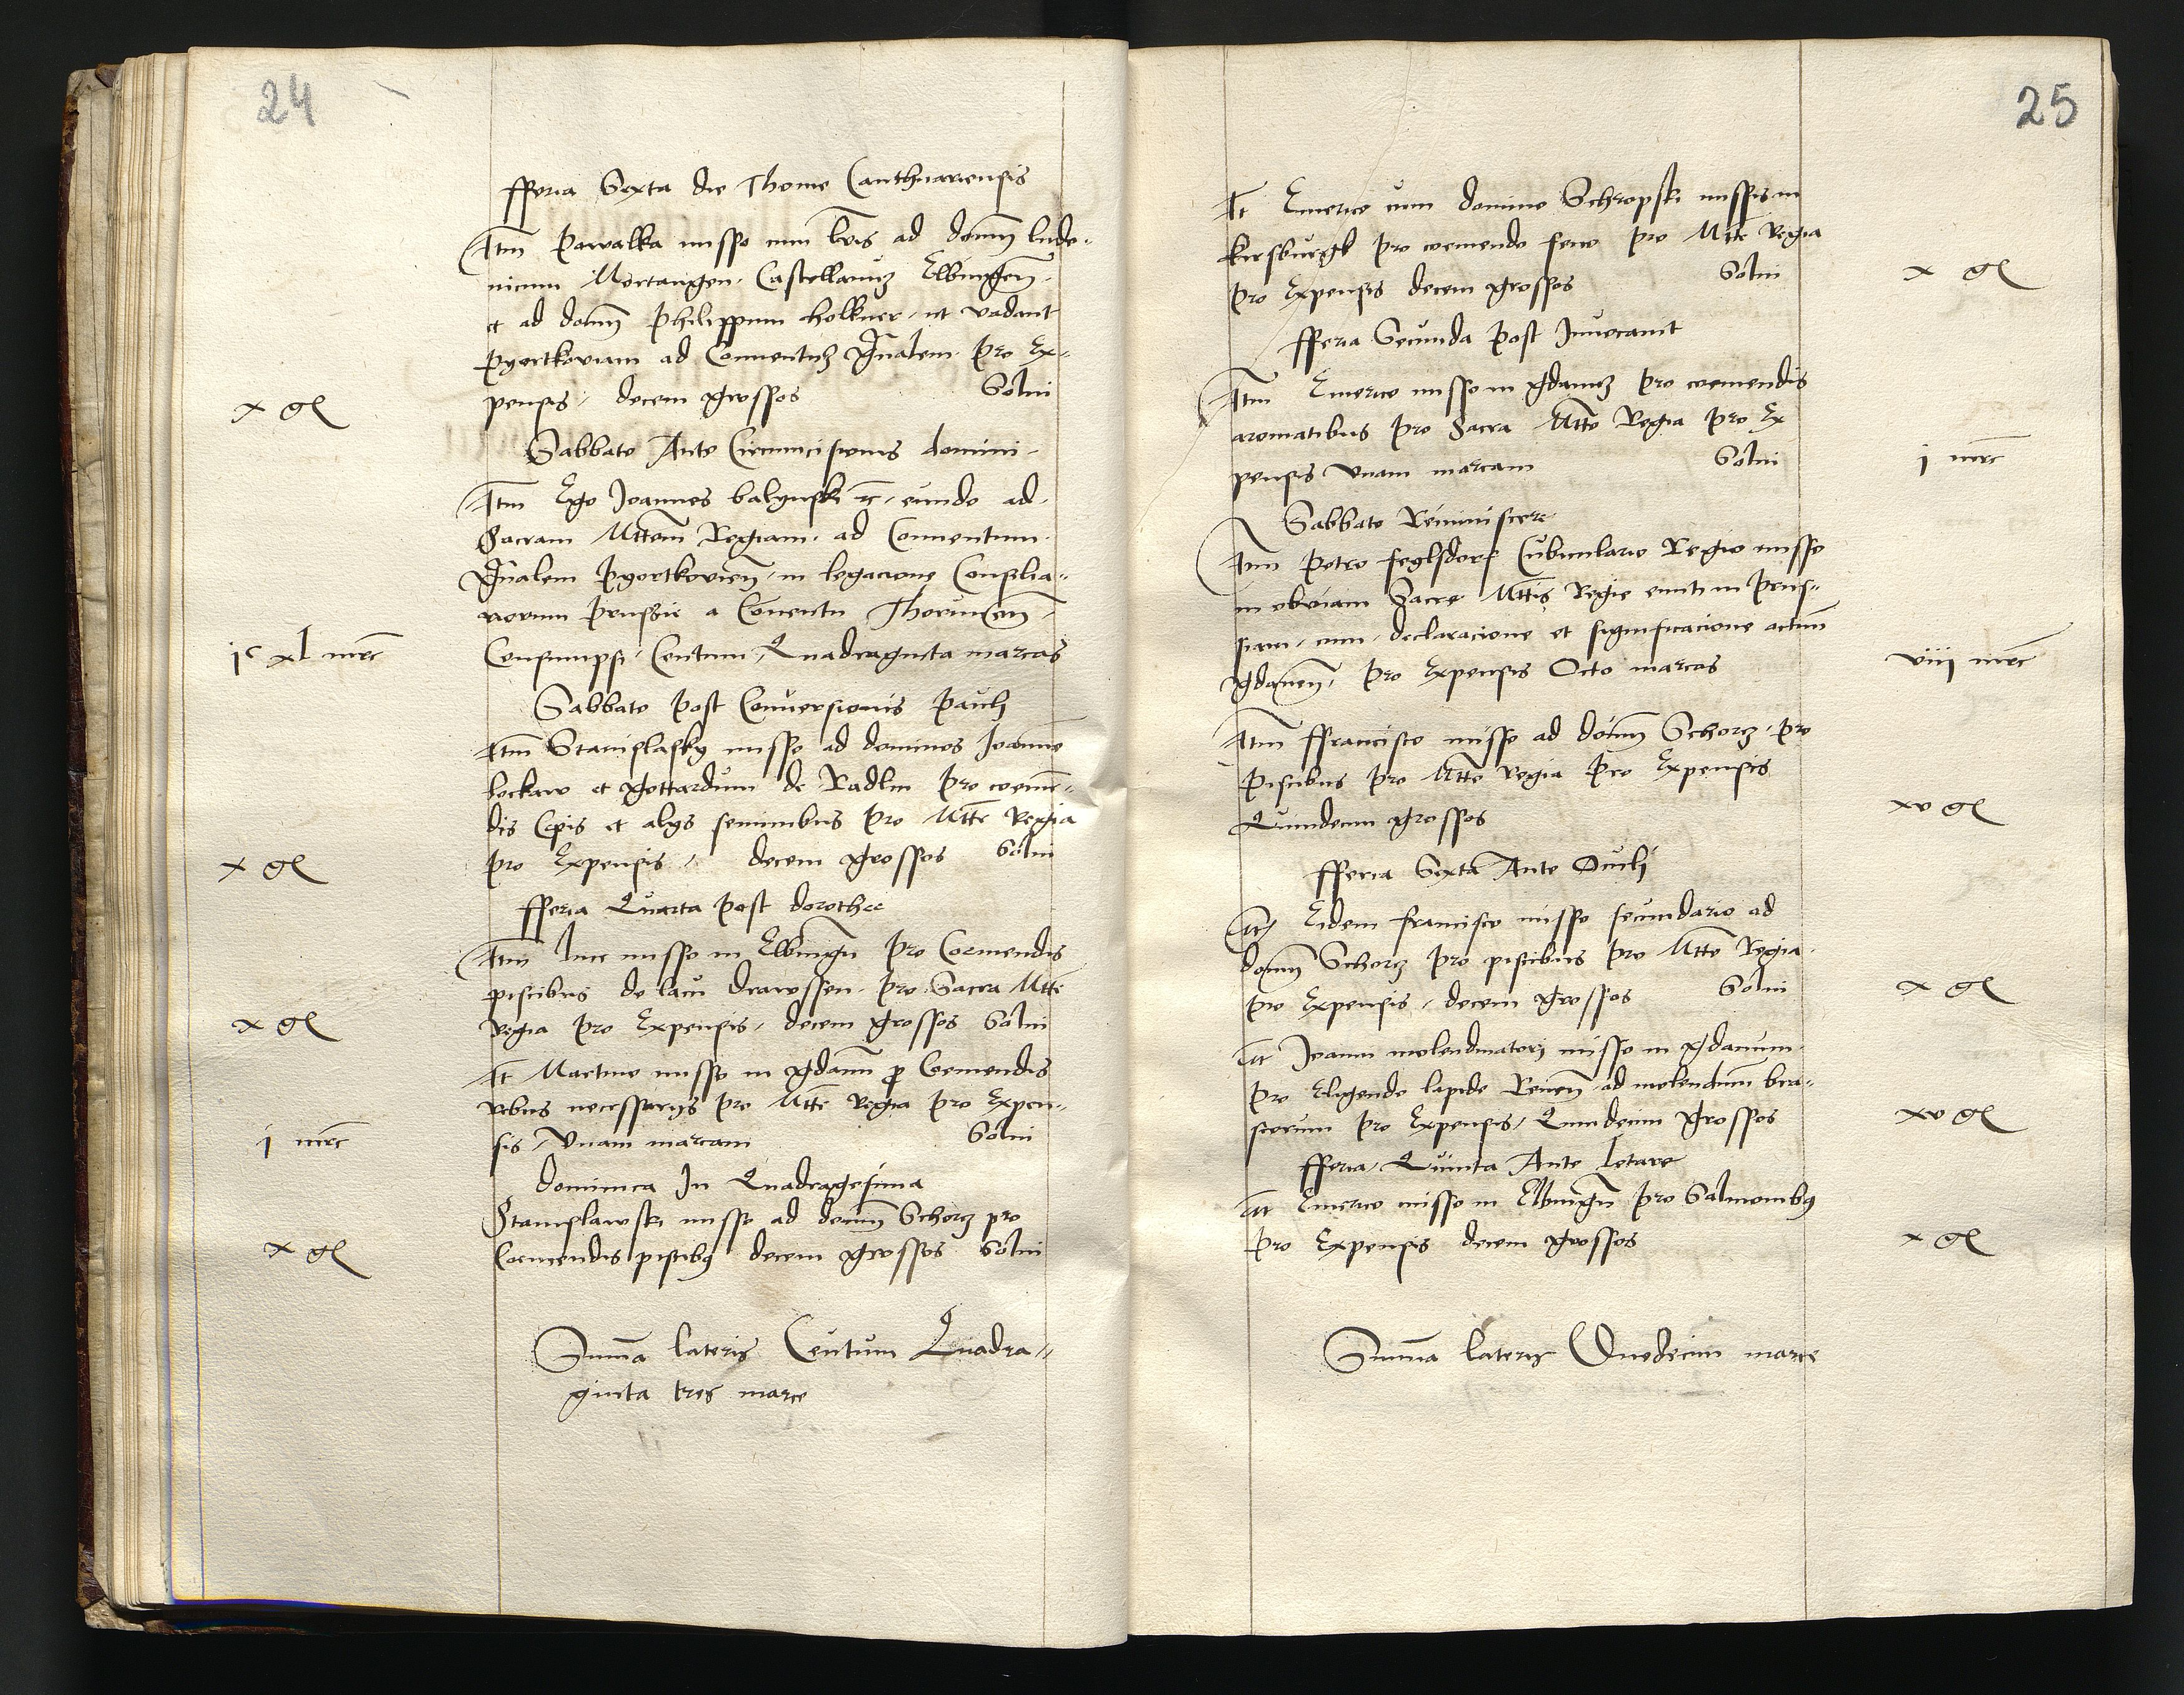 24
fferia Sexta die Thome Canthuariensis
Itm Pawalka misso cum lris ad donm ludo-
uicum Mortangen. Castellanuz Elbingen.
et ad donm Philippum holkner. ut vadant
Pyortkoviam ad Conuentuz gnalem. Pro Ex-
pensis, decem grossos Solui
x gl
Sabbato Ante Circumcisionis domini.
Itm Ego Joannes balynski rc. eundo ad.
Sacram Mttem Regiam. ad Conuentum.
gnalem Pyortkovien. in legacione Consilia-
riorum Prussie a Conentu Thorunen.
Consumpsi. Centum, Quadraginta marcas
jc xl mrc
Sabbato Post Conuersionis Pauli
Itm Stanislasky misso ad dominos Joanne
lockaw et gottardum de Radlin Pro coemen-
dis Cepis et alys seminibus Pro Mtte Regia
Pro Expensis, decem grossos Solui
x gl
fferia Quarta Post dorothee
Itm luce misso in Elbingn Pro Coemendis
piscibus de lacu drawssen. Pro. Sacra Mtte
Regia Pro Expensis, decem grossos Solui
x gl
It Martino misso in gdanm p Coemendis
rebus necessarijs Pro Mtte Regia Pro Expen-
sis, Vnam marcam Solui
j mrc
Dominica In Quadragesima
Stanislawski misso ad donm Schorz pro
Coemendis piscib9 decem grossos Solui
x gl
Suma lateris Centum Quadra-
ginta tres marce
25
It Emerico cum domino Schropski missis in
kirsburgk Pro coemendo feno Pro Mtte Regia
Pro Expensis decem grossos Solui
x gl
fferia Secunda Post Inuocauit
Itm Emerico misso in gdanuz Pro coemendis
aromatibus Pro Sacra Mtte Regia Pro Ex
pensis Vnam marcam Solui
j mrc
Sabbato Reminiscere
Itm Petro feglsdorf Cubiculario Regio misso
in obuiam Sacre Mttis Regie eunti in Prus-
siam, cum. declaracione et significacione actum
gdanen. Pro Expensis Octo marcas
viij mrc
Itm ffrancisco misso ad donm Schorz. Pro
Piscibus Pro Mtte Regia Pro Expensis
Quindecim grossos
xv gl
fferia Sexta Ante Oculi
It Eidem francisco misso secundario ad
donm Schorz Pro piscibus Pro Mtte Regia.
Pro Expensis, decem grossos Solui
x gl
It Joanni molendinatori misso in gdanum.
Pro Eligendo lapide Renen. ad molendinum bra-
seorum Pro Expensis, Quindecim grossos
xv gl
fferia, Quinta Ante letare
It Emerico misso in Elbingn Pro Salmonib9
Pro Expensis decem grossos
x gl
Suma lateris Duodecim marce